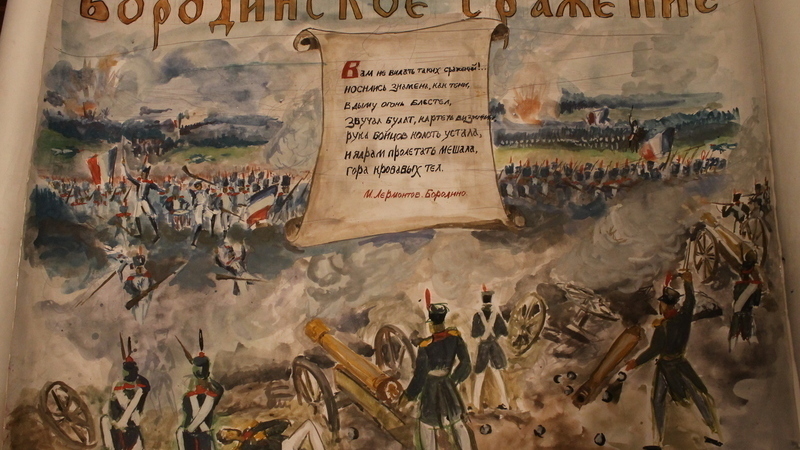 Бородинское сражение
Вам не видать таких сражений!..
Носились знамена, как тени,
В дыму огонь блестел,
Звучал булат, картечь визжала,
Рука бойцов колоть устала,
И ядрам пролетать мешала,
гора кровавых тел.
М. Лермонтов. Бородино.